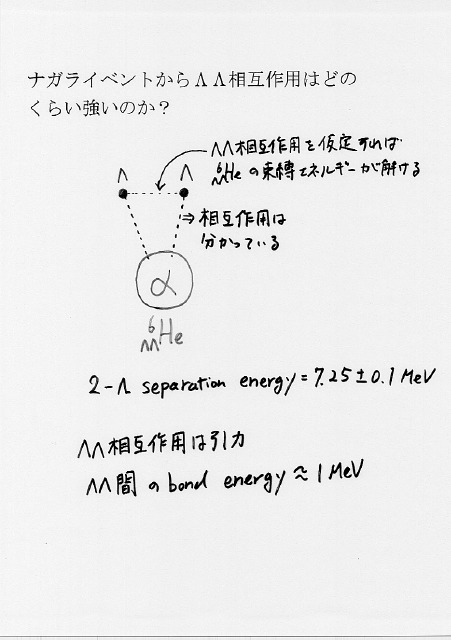 ナガライベントからΛΛ相互作用はどの
くらい強いのか？
ΛΛ相互作用を仮定すれば
⁶ΛΛHeの束縛エネルギーが解ける
Λ Λ
⇒相互作用は
分かっている
α
⁶ΛΛHe
2-Λ separation energy = 7.25±0.1 MeV
ΛΛ相互作用は引力
ΛΛ間のbond energy≈1MeV